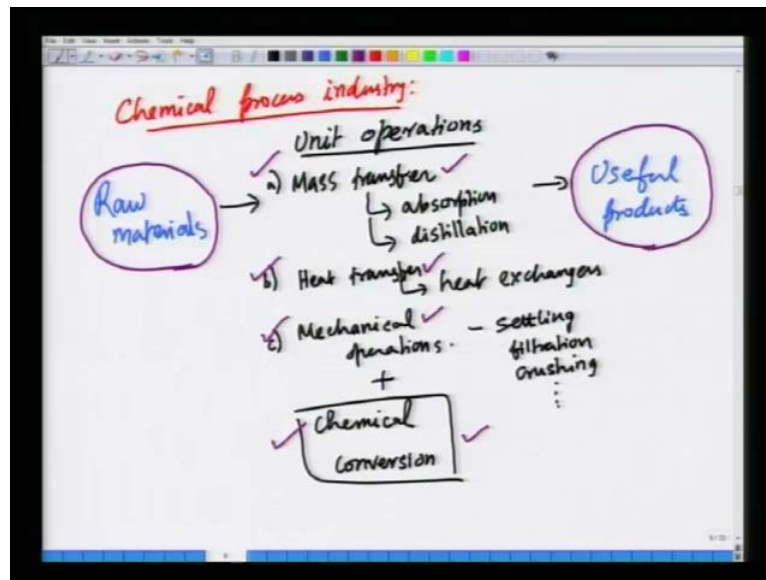 Chemical process industry:
Unit operations
Raw
materials
a) Mass transfer
↳ absorption
↳ distillation
Useful
products
b) Heat transfer
↳ heat exchangers
c) Mechanical
operations.
- settling
filtration
crushing
+
Chemical
conversion